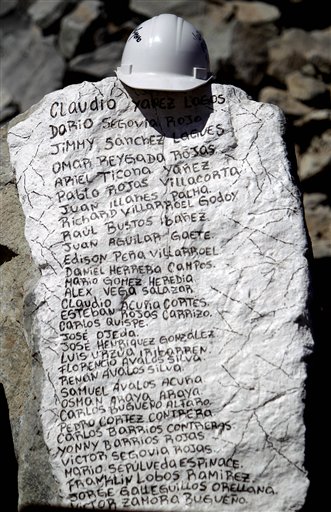 CLAUDIO YAÑEZ LAGOS
DARIO SEGOVIA ROJO
JIMMY SANCHEZ LAGUES
OMAR REYGADA ROJAS
ARIEL TICONA YAÑEZ
PABLO ROJAS VILLACORTA
JUAN ILLANES PACHA.
RICHARD VILLARROEL GODOY
RAUL BUSTOS IBAÑEZ.
JUAN AGUILAR GAETE.
EDISON PEÑA VILLARROEL
DANIEL HERRERA CAMPOS.
MARIO GOMEZ HEREDIA.
ALEX VEGA SALAZAR.
CLAUDIO ACUÑA CORTES.
ESTEBAN ROJAS CARRIZO.
CARLOS QUISPE.
JOSE OJEDA.
JOSE HENRIQUEZ GONZÁLEZ
LUIS URZUA IRIBARREN.
FLORENCIO AVALOS SILVA
RENAN AVALOS SILVA.
SAMUEL AVALOS ACUÑA
OSMAN ARAYA ARAYA
CARLOS BUGUEÑO ALFARO.
PEDRO CORTEZ CONTRERA
CARLOS BARRIOS CONTRERAS.
YONNY BARRIOS ROJAS.
VICTOR SEGOVIA ROJAS.
MARIO SEPÚLVEDA ESPINACE.
FRANKLIN LOBOS RAMIREZ.
JORGE GALLEGUILLOS ORELLANA.
VICTOR ZAMORA BUGUEÑO.